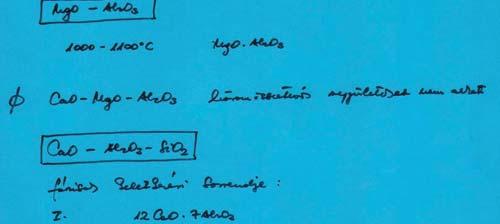 MgO - Al₂O₃
1000 - 1100°C MgO·Al₂O₃
∅ CaO - MgO - Al₂O₃ három vegyületeset nem
CaO - Al₂O₃ - SiO₂
fázisok keletkezési sorrendje :
I. 12 CaO · 7 Al₂O₃